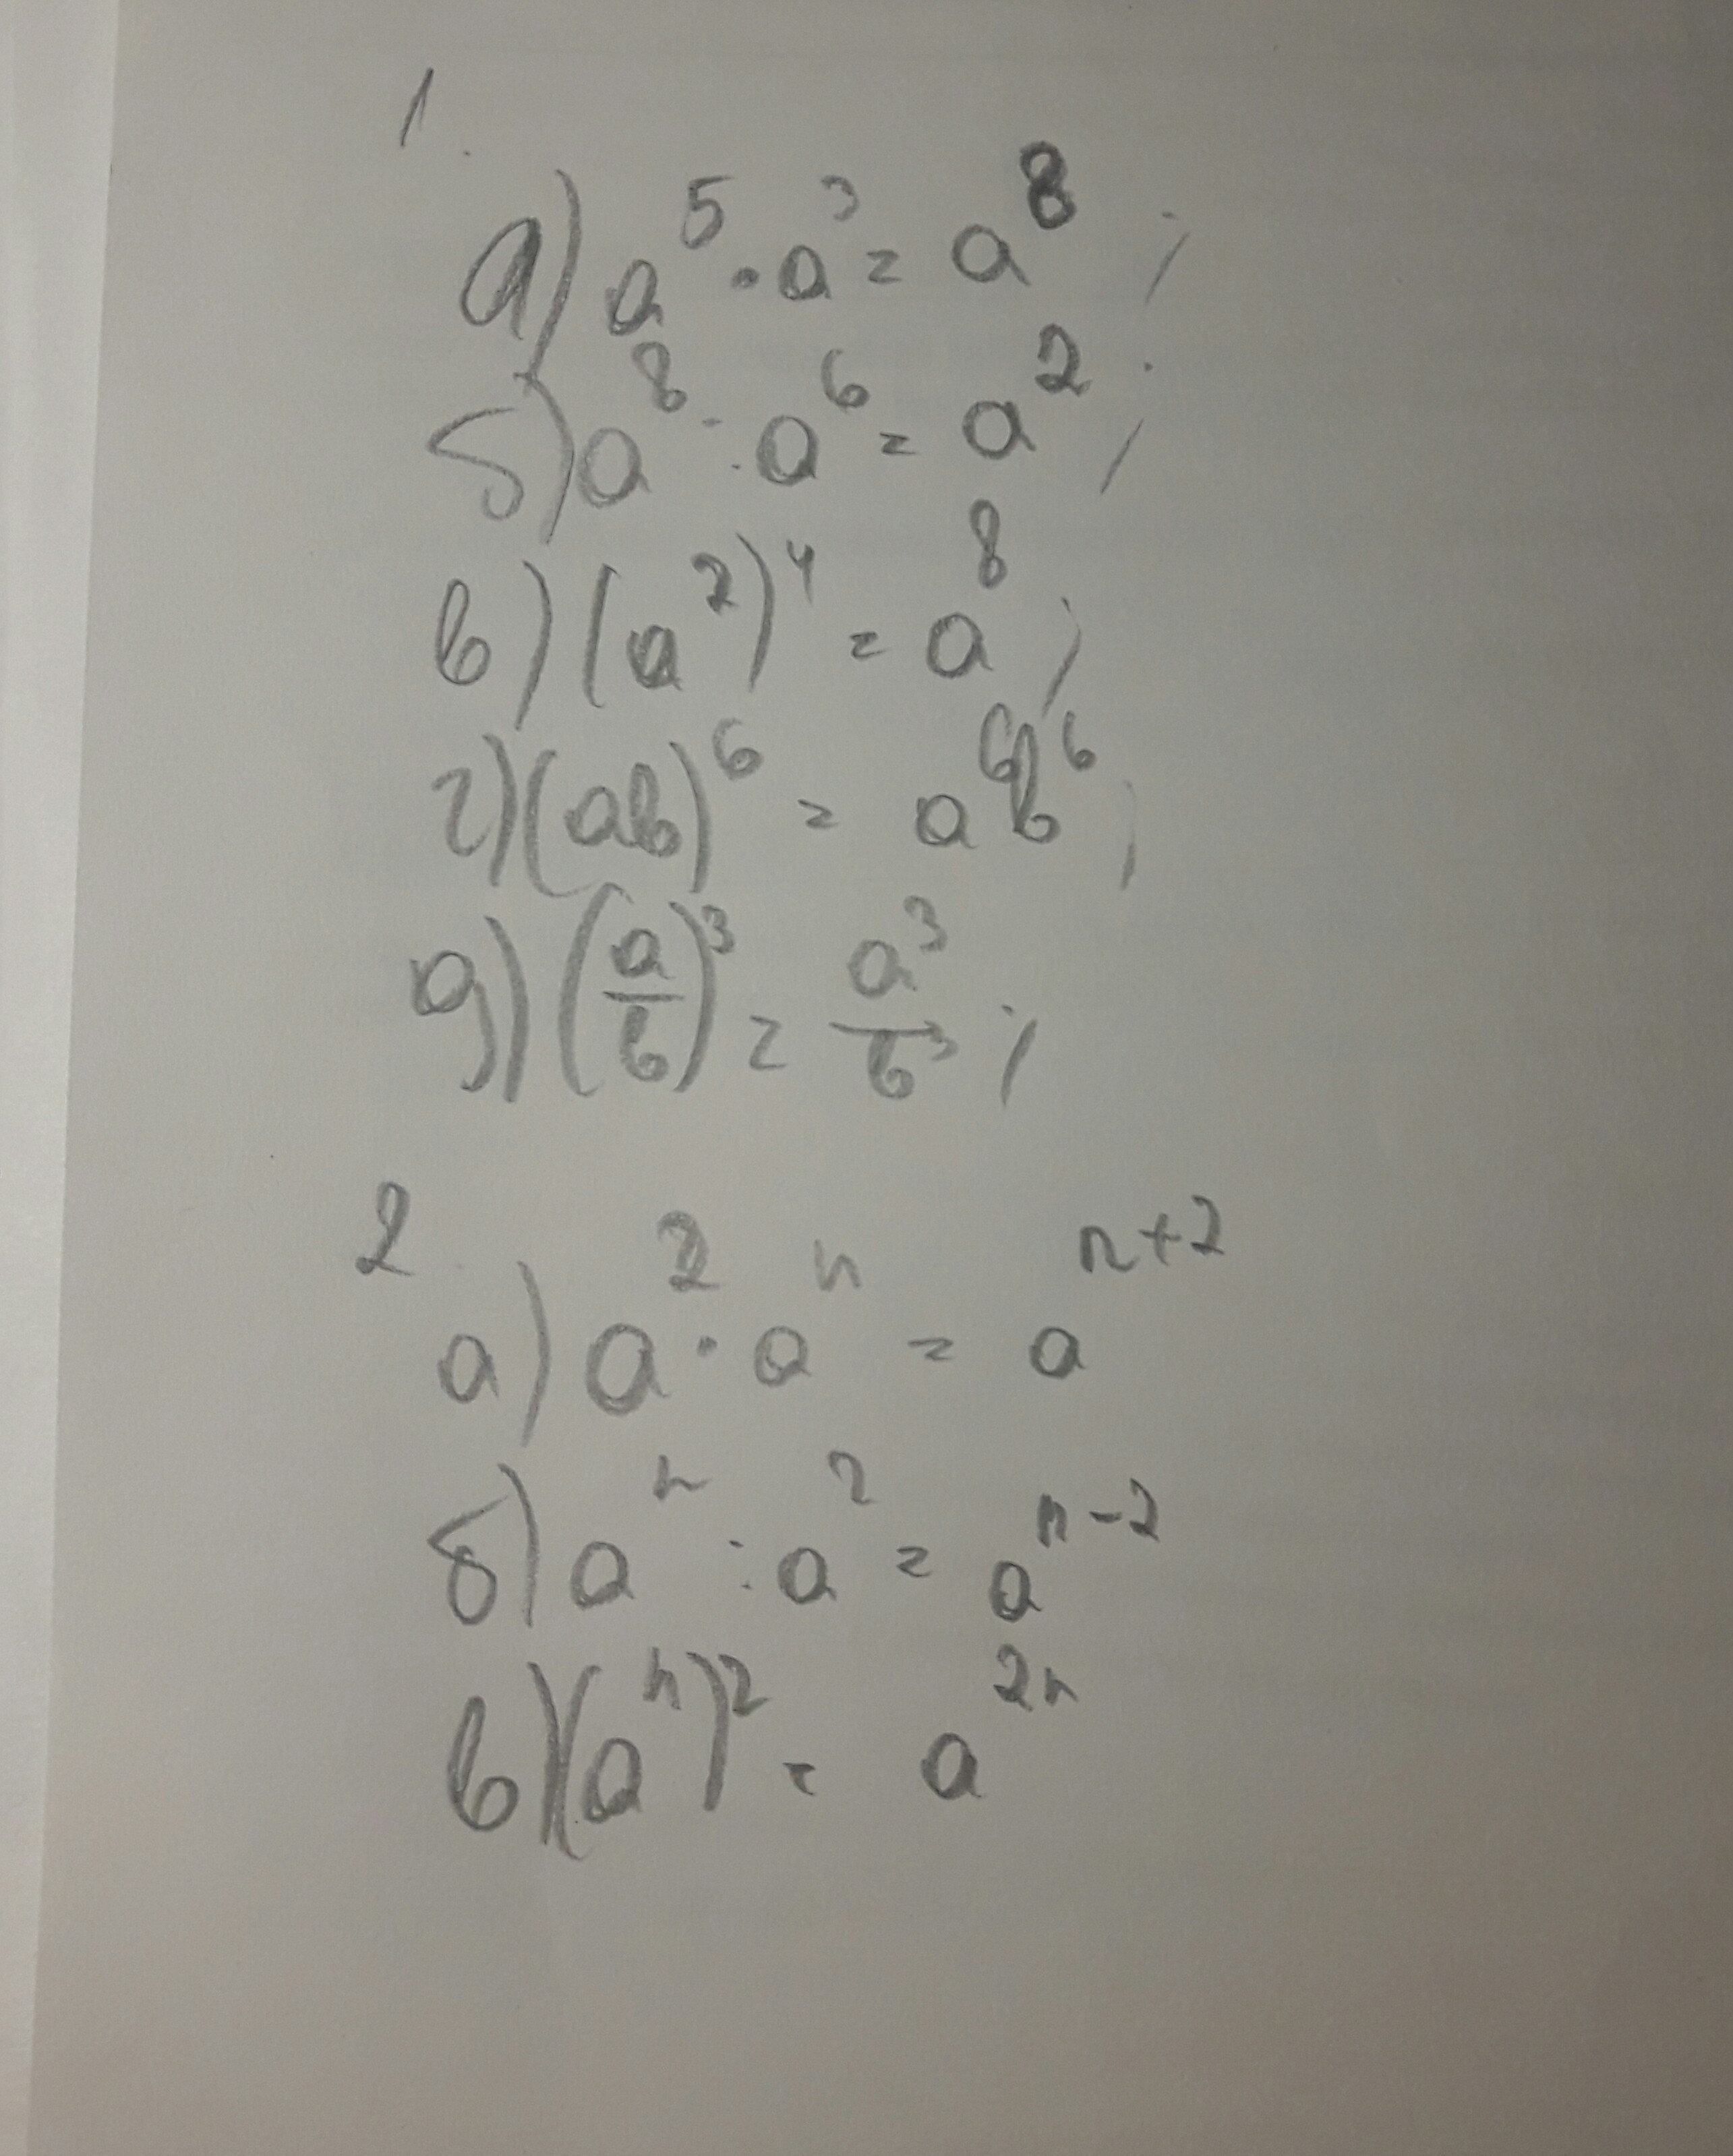 1.
а) a⁵ · a³ = a⁸ ;
б) a⁸ : a⁶ = a² ;
в) (a²)⁴ = a⁸ ;
г) (ab)⁶ = a⁶b⁶ ;
д) (a/b)³ = a³/b³ ;
2.
а) a² · aⁿ = aⁿ⁺²
б) aⁿ : a² = aⁿ⁻²
в) (aⁿ)² = a²ⁿ